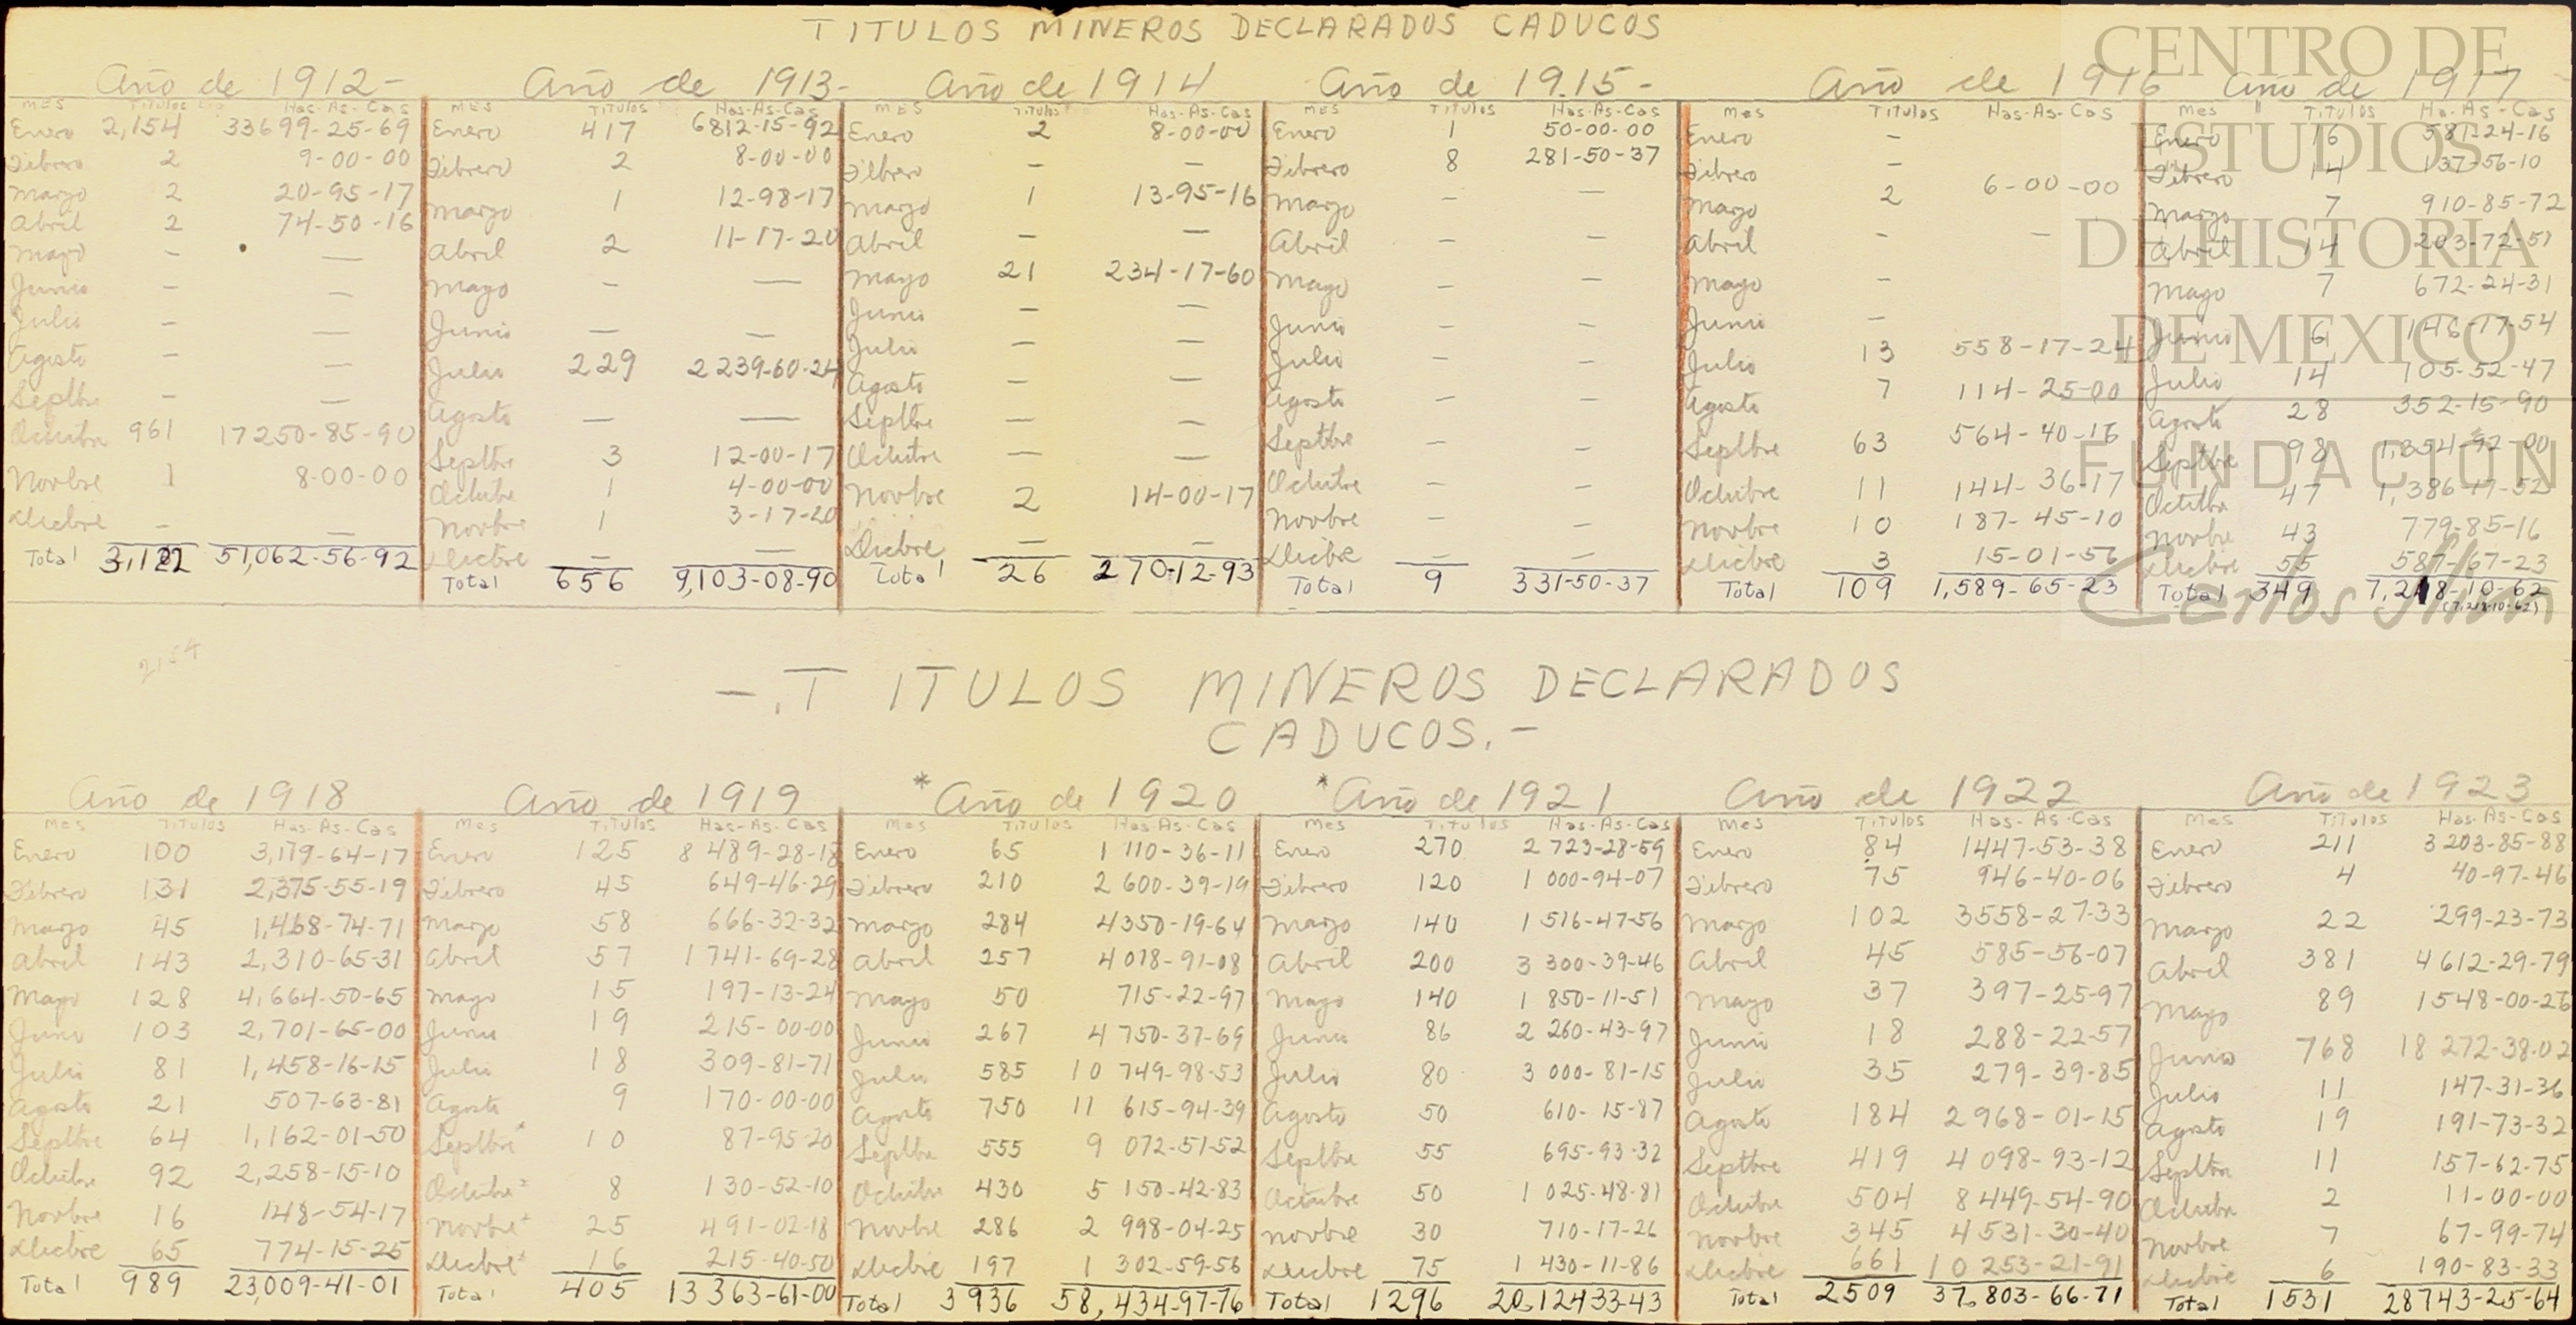 TITULOS MINEROS DECLARADOS CADUCOS
Año de 1912-
MES Titulos Has-As-Cas
Enero 2,154 33699-25-69
Febrero 2 9-00-00
Marzo 2 20-95-17
Abril 2 74-50-16
Mayo - —
Junio - —
Julio - —
Agosto - —
Septbre - —
Octubre 961 17250-85-90
Novbre 1 8-00-00
Dicbre - —
Total 3,122 51,062-56-92
Año de 1913-
MES TITULOS Has-As-Cas
Enero 417 6812-15-92
Febrero 2 8-00-00
Marzo 1 12-98-17
Abril 2 11-17-20
Mayo - —
Junio — —
Julio 229 2239-60-24
Agosto — —
Septbre 3 12-00-17
Octubre 1 4-00-00
Novbre 1 3-17-20
Dicbre — —
Total 656 9,103-08-90
Año de 1914
MES Titulos Has-As-Cas
Enero 2 8-00-00
Febrero — —
Marzo 1 13-95-16
Abril — —
Mayo 21 234-17-60
Junio — —
Julio — —
Agosto — —
Septbre — —
Octubre — —
Novbre 2 14-00-17
Dicbre — —
Total 26 270-12-93
Año de 19.15-
Mes Titulos Has-As-Cas
Enero 1 50-00-00
Febrero 8 281-50-37
Marzo - —
Abril - -
Mayo - -
Junio - -
Julio - -
Agosto - -
Septbre - -
Octubre - -
Novbre - -
Dicbre - -
Total 9 331-50-37
Año de 1916
Mes Titulos Has-As-Cas
Enero -
Febrero -
Marzo 2 6-00-00
Abril - —
Mayo -
Junio -
Julio 13 558-17-24
Agosto 7 114-25-00
Septbre 63 564-40-16
Octubre 11 144-36-17
Novbre 10 187-45-10
Dicbre 3 15-01-56
Total 109 1,589-65-23
Año de 1917
Mes Titulos Ha-As-Cas
Enero 16 581-24-16
Febrero 14 137-56-10
Marzo 7 910-85-72
Abril 14 203-72-51
Mayo 7 672-24-31
Junio 6 146-17-54
Julio 14 105-52-47
Agosto 28 352-15-90
Septbre 98 1,354-92-00
Octubre 47 1,386-17-52
Novbre 43 779-85-16
Dicbre 55 587-67-23
Total 349 7,218-10-62
(7,218-10-62)
CENTRO DE
ESTUDIOS
DE HISTORIA
DE MEXICO
FUNDACION
Carlos Slim
2154
-.TITULOS MINEROS DECLARADOS
CADUCOS.-
Año de 1918
Mes TITULOS Has-As-Cas
Enero 100 3,179-64-17
Febrero 131 2,375-55-19
Marzo 45 1,468-74-71
Abril 143 2,310-65-31
Mayo 128 4,664-50-65
Junio 103 2,701-65-00
Julio 81 1,458-16-15
Agosto 21 507-63-81
Septbre 64 1,162-01-50
Octubre 92 2,258-15-10
Novbre 16 148-54-17
Dicbre 65 774-15-25
Total 989 23,009-41-01
Año de 1919
Mes TITULOS Has-As-Cas
Enero 125 8 489-28-18
Febrero 45 649-46-29
Marzo 58 666-32-32
Abril 57 1 741-69-28
Mayo 15 197-13-24
Junio 19 215-00-00
Julio 18 309-81-71
Agosto 9 170-00-00
Septbre* 10 87-95-20
Octubre* 8 130-52-10
Novbre* 25 491-02-18
Dicbre* 16 215-40-50
Total 405 13 363-61-00
*Año de 1920
Mes Titulos Has-As-Cas
Enero 65 1 110-36-11
Febrero 210 2 600-39-19
Marzo 284 4350-19-64
Abril 257 4 018-91-08
Mayo 50 715-22-97
Junio 267 4 750-37-69
Julio 585 10 749-98-53
Agosto 750 11 615-94-39
Septbre 555 9 072-51-52
Octubre 430 5 150-42-83
Novbre 286 2 998-04-25
Dicbre 197 1 302-59-56
Total 3 936 58,434-97-76
*Año de 1921
Mes Titulos Has-As-Cas
Enero 270 2 723-28-59
Febrero 120 1 000-94-07
Marzo 140 1 516-47-56
Abril 200 3 300-39-46
Mayo 140 1 850-11-51
Junio 86 2 260-43-97
Julio 80 3 000-81-15
Agosto 50 610-15-87
Septbre 55 695-93-32
Octubre 50 1 025-48-81
Novbre 30 710-17-26
Dicbre 75 1 430-11-86
Total 1296 20,12433-43
Año de 1922
Mes Titulos Has-As-Cas
Enero 84 1447-53-38
Febrero 75 946-40-06
Marzo 102 3558-27-33
Abril 45 585-56-07
Mayo 37 397-25-97
Junio 18 288-22-57
Julio 35 279-39-85
Agosto 184 2968-01-15
Septbre 419 4 098-93-12
Octubre 504 8 449-54-90
Novbre 345 4 531-30-40
Dicbre 661 10 253-21-91
Total 2509 37.803-66-71
Año de 1923
Mes Titulos Has-As-Cas
Enero 211 3 203-85-88
Febrero 4 40-97-46
Marzo 22 299-23-73
Abril 381 4 612-29-79
Mayo 89 1548-00-26
Junio 768 18 272-38-02
Julio 11 147-31-36
Agosto 19 191-73-32
Septbre 11 157-62-75
Octubre 2 11-00-00
Novbre 7 67-99-74
Dicbre 6 190-83-33
Total 1531 28743-25-64